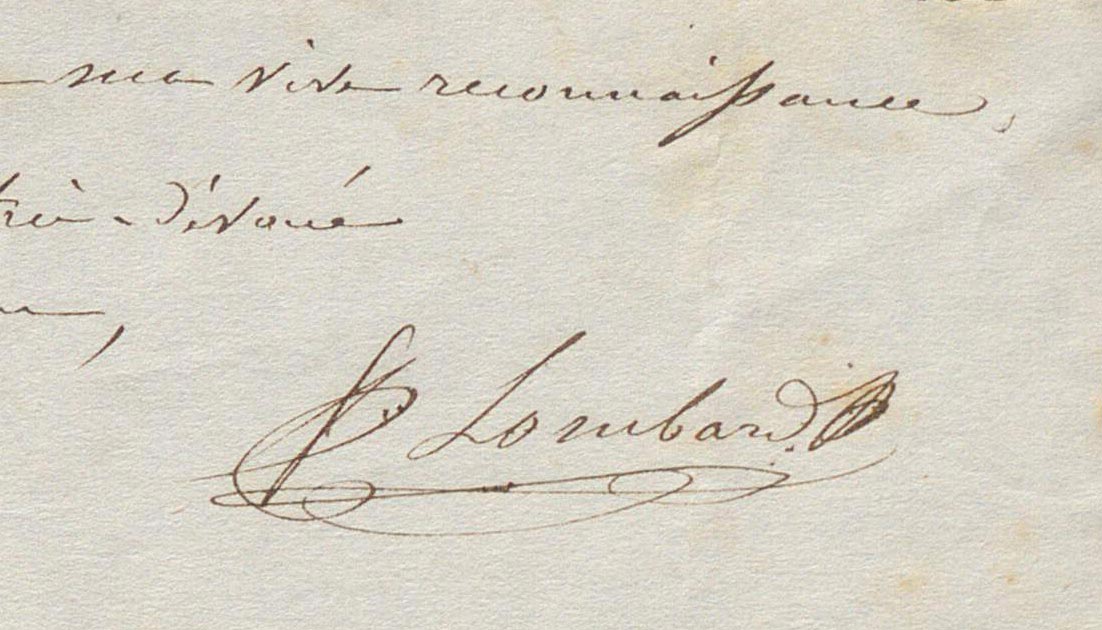 ma vive reconnaissance,
très-dévoué
P. Lombard